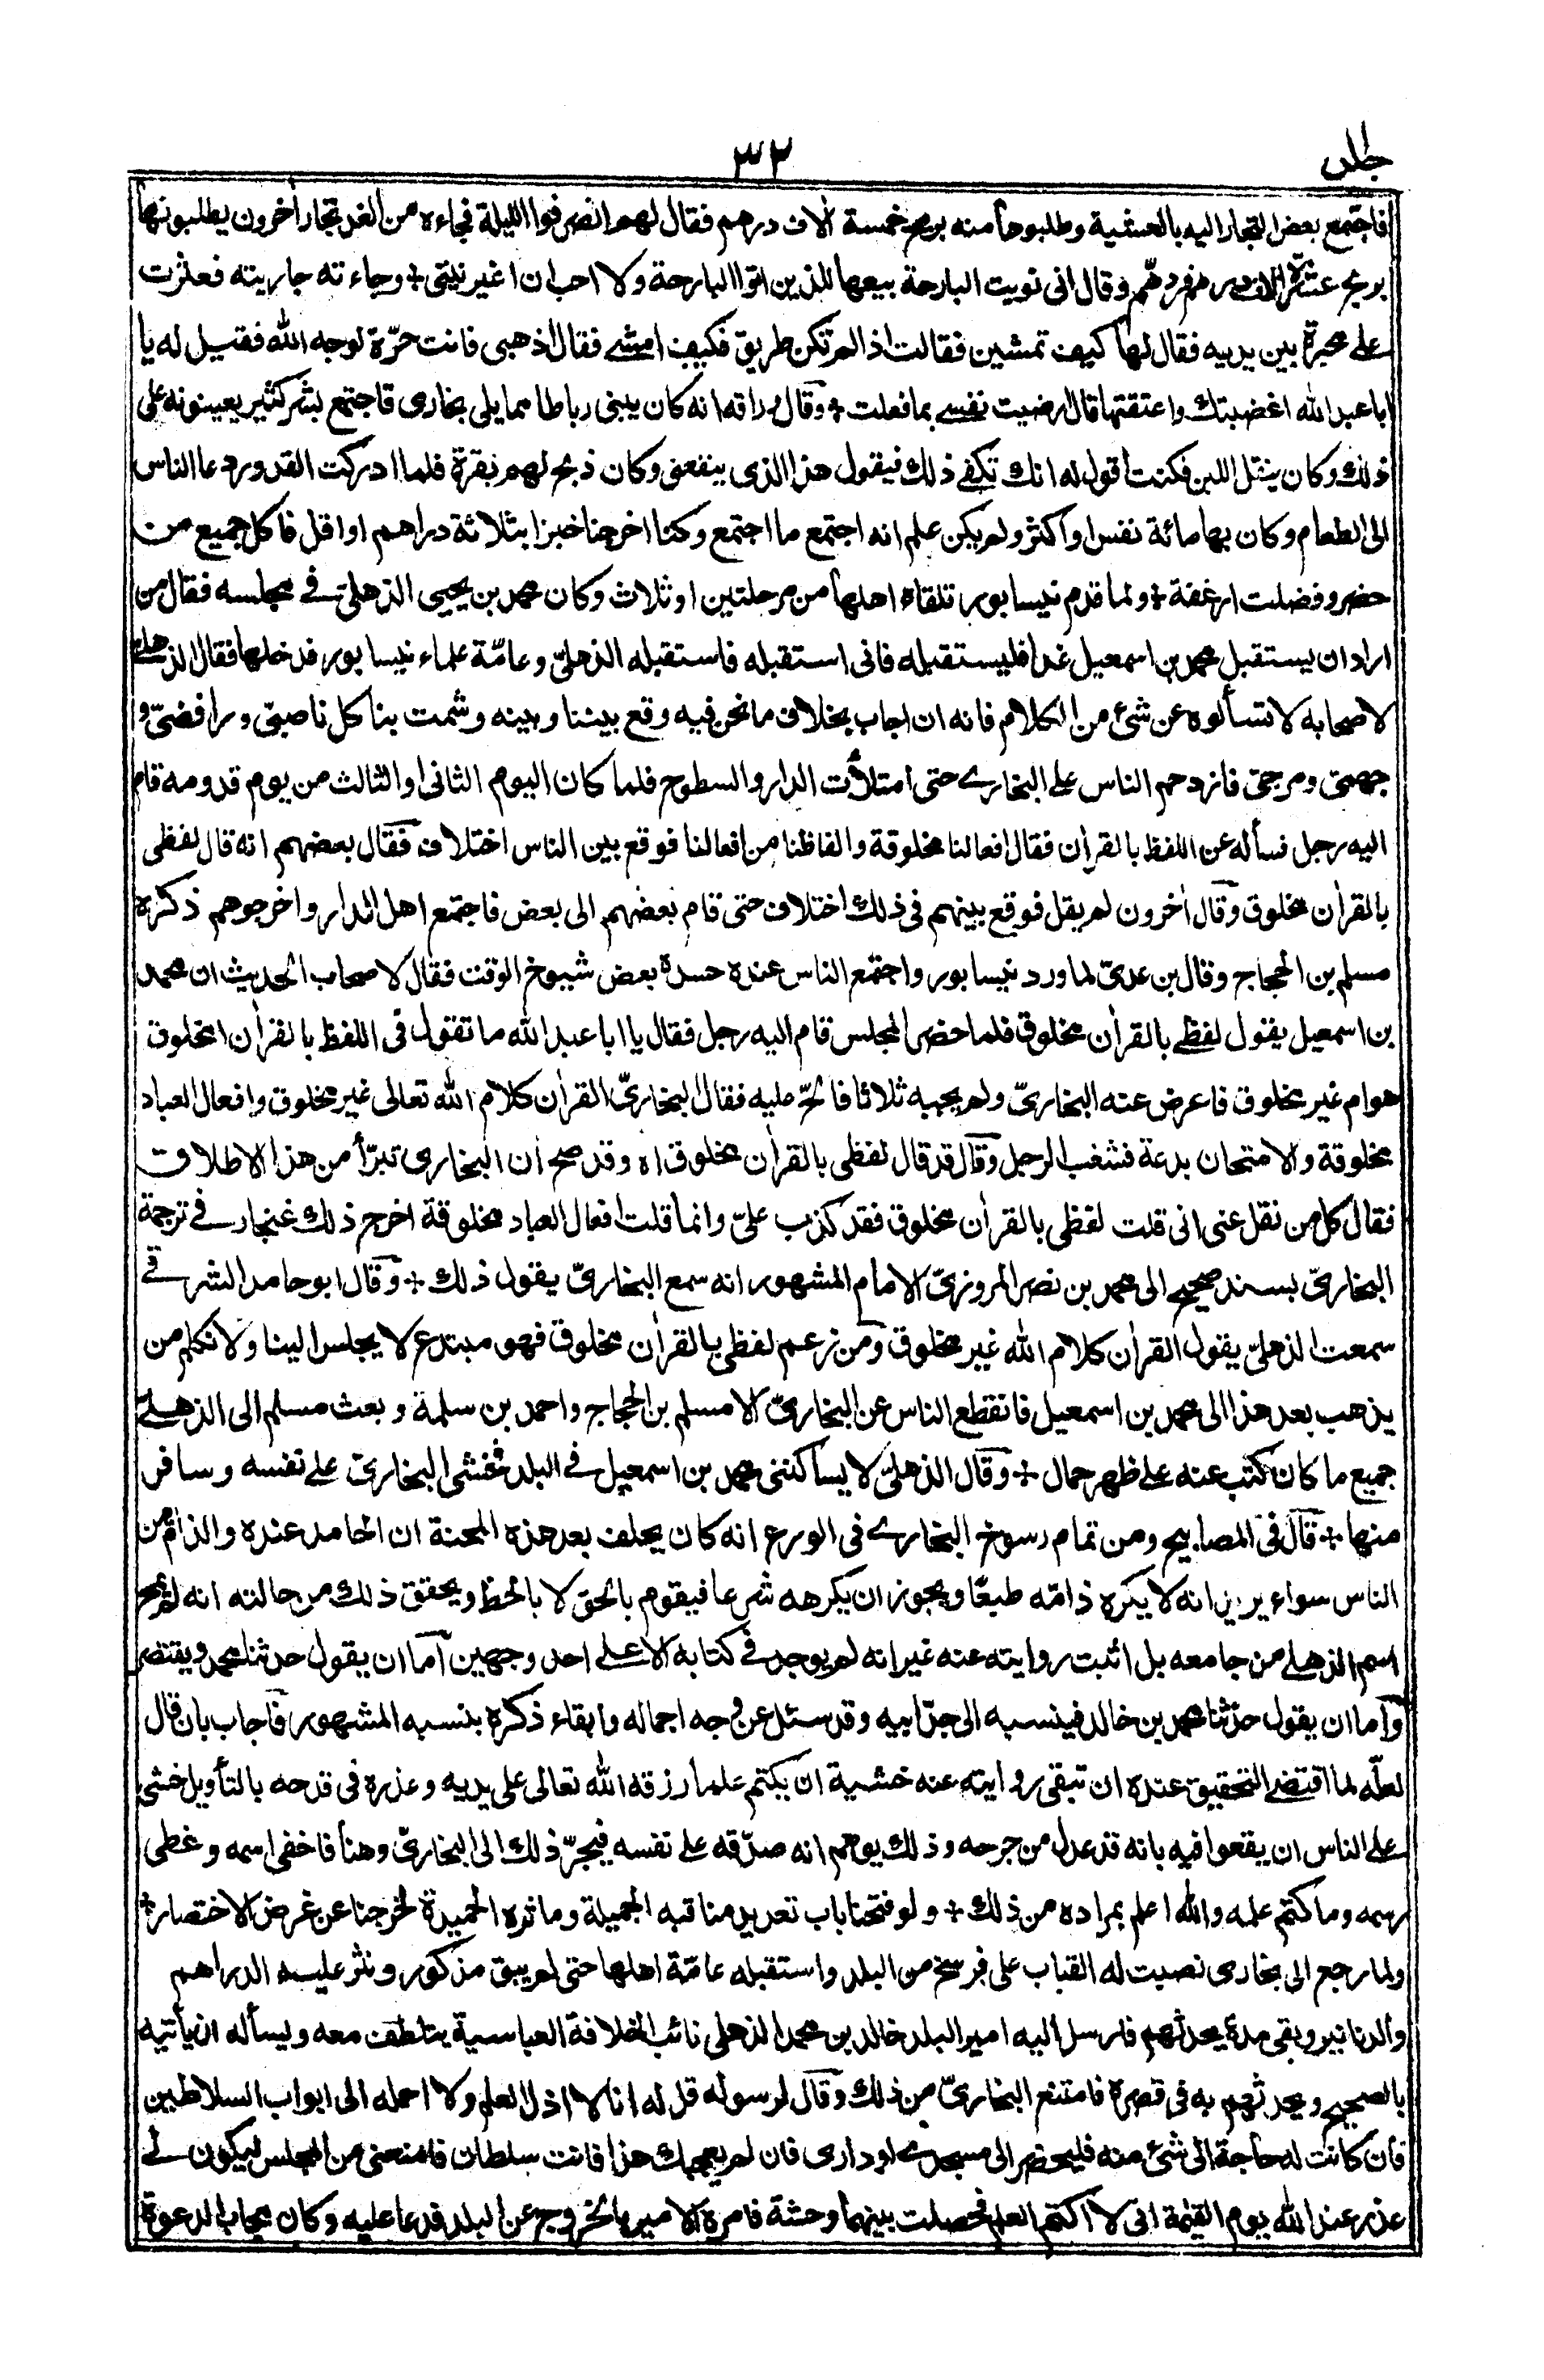 جلد
٣٢
فاجتمع بعض التجار اليه بالعشية وطلبوها منه بربح خمسة الاف درهم فقال لهم انصرفوا الليلة فجاءه من الغد تجار اخرون يطلبونها
بربح عشرة الاف درهم فردهم وقال انى نويت البارحة بيعها للذين اتوا البارحة ولا احب ان اغير نيتى + وجاءته جاريته فعثرت
على محبرة بين يديه فقال لها كيف تمشين فقالت اذا لم تكن طريق فكيف امشى فقال اذهبى فانت حرّة لوجه الله فقيل له يا
ابا عبد الله اغضبتك واعتقتها قال ارضيت نفسى بما فعلت + وقال وراقه انه كان يبنى رباطا مما يلى بخارى فاجتمع بشر كثير يعينونه على
ذلك وكان ينقل اللبن فكنت اقول له انك تكفى ذلك فيقول هذا الذى ينفعنى وكان ذبح لهم بقرة فلما ادركت القدور دعا الناس
الى الطعام وكان بها مائة نفس او اكثر ولم يكن علم انه اجتمع ما اجتمع وكنا اخرجنا خبزا بثلاثة دراهم او اقل فاكل جميع من
حضر وفضلت ارغفة + ولما قدم نيسابور تلقاه اهلها من مرحلتين او ثلاث وكان محمد بن يحيى الذهلىّ فى مجلسه فقال من
اراد ان يستقبل محمد بن اسمعيل غدا فليستقبله فانى استقبله فاستقبله الذهلىّ وعامّة علماء نيسابور فدخلها فقال الذهلى
لاصحابه لا تسألوه عن شئ من الكلام فانه ان اجاب بخلاف ما نحن فيه وقع بيننا وبينه وشمت بنا كل ناصبىّ ورافضىّ و
جهمىّ ومرجئ فازدحم الناس على البخارى حتى امتلأت الدار والسطوح فلما كان اليوم الثانى او الثالث من يوم قدومه قام
اليه رجل فسأله عن اللفظ بالقرأن فقال افعالنا مخلوقة والفاظنا من افعالنا فوقع بين الناس اختلاف فقال بعضهم انه قال لفظى
بالقرأن مخلوق وقال اخرون لم يقل فوقع بينهم فى ذلك اختلاف حتى قام بعضهم الى بعض فاجتمع اهل الدار واخرجوهم ذكره
مسلم بن الحجاج وقال بن عدىّ لما ورد نيسابور واجتمع الناس عنده حسده بعض شيوخ الوقت فقال لاصحاب الحديث ان محمد
بن اسمعيل يقول لفظى بالقرأن مخلوق فلما حضر المجلس قام اليه رجل فقال يا ابا عبد الله ما تقول فى اللفظ بالقرأن امخلوق
هو ام غير مخلوق فاعرض عنه البخارىّ ولم يجبه ثلاثا فالحّ عليه فقال البخارىّ القرأن كلام الله تعالى غير مخلوق وافعال العباد
مخلوقة والامتحان بدعة فشغب الرجل وقال قد قال لفظى بالقرأن مخلوق اه وقد صح ان البخارى تبرّأ من هذا الاطلاق
فقال كل من نقل عنى انى قلت لفظى بالقرأن مخلوق فقد كذب علىّ وانما قلت افعال العباد مخلوقة اخرج ذلك غنجار فى ترجمة
البخارىّ بسند صحيح الى محمد بن نصر المروزىّ الامام المشهور انه سمع البخارىّ يقول ذلك + وقال ابو حامد الشرقى
سمعت الذهلىّ يقول القرأن كلام الله غير مخلوق ومن زعم لفظى بالقرأن مخلوق فهو مبتدع لا يجلس الينا ولا نكلم من
يذهب بعد هذا الى محمد بن اسمعيل فانقطع الناس عن البخارىّ الا مسلم بن الحجاج واحمد بن سلمة وبعث مسلم الى الذهلىّ
جميع ما كان كتب عنه على ظهر حمال + وقال الذهلىّ لا يساكننى محمد بن اسمعيل فى البلد فخشى البخارىّ على نفسه وسافر
منها + قال فى المصابيح ومن تمام رسوخ البخارى فى الورع انه كان يحلف بعد هذه المحنة ان الحامد عنده والذامّ من
الناس سواء يريد انه لا يكره ذامّه طبعًا ويجوز ان يكرهه شرعا فيقوم بالحق لا بالحظ ويحقق ذلك من حالته انه لم يمح
اسم الذهلى من جامعه بل اثبت روايته عنه غير انه لم يوجد فى كتابه الا على احد وجهين اما ان يقول حدثنا محمد ويقتصر
واما ان يقول حدّثنا محمد بن خالد فينسبه الى جدّ ابيه وقد سئل عن وجه اجماله وابقاء ذكره بنسبه المشهور فاجاب بان قال
لعلّه لما اقتضى التحقيق عنده ان تبقى روايته عنه خشية ان يكتم علما رزقه الله تعالى على يديه وعذره فى قدحه بالتأويل خشى
على الناس ان يقعوا فيه بانه قد عدل من جرحه وذلك يوهم انه صدّقه على نفسه فيجرّ ذلك الى البخارىّ وهنا فاخفى اسمه وغطى
رسمه وما كتم علمه والله اعلم بمراده من ذلك + ولو فتحنا باب تعديد مناقبه الجميلة وماثره الحميدة لخرجنا عن غرض الاختصار +
ولما رجع الى بخارى نصبت له القباب على فرسخ من البلد واستقبله عامّة اهلها حتى لم يبق مذكور ونثر عليه الدراهم
والدنانير وبقى مدة يحدثهم فارسل اليه امير البلد خالد بن محمد الذهلى نائب الخلافة العباسية يتلطف معه ويسأله ان يأتيه
بالصحيح ويحدثهم به فى قصره فامتنع البخارىّ من ذلك وقال لرسوله قل له انا لا اذل العلم ولا احمله الى ابواب السلاطين
فان كانت له حاجة الى شئ منه فليحضر الى مسجدى او دارى فان لم يعجبك هذا فانت سلطان فامنعنى من المجلس ليكون لى
عذر عند الله يوم القيٰمة انى لا اكتم العلم فحصلت بينهما وحشة فامره الامير بالخروج عن البلد فدعا عليه وكان مجاب الدعوة